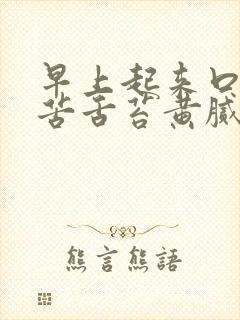 早上起来口
苦舌苔黄腻
熊言熊語